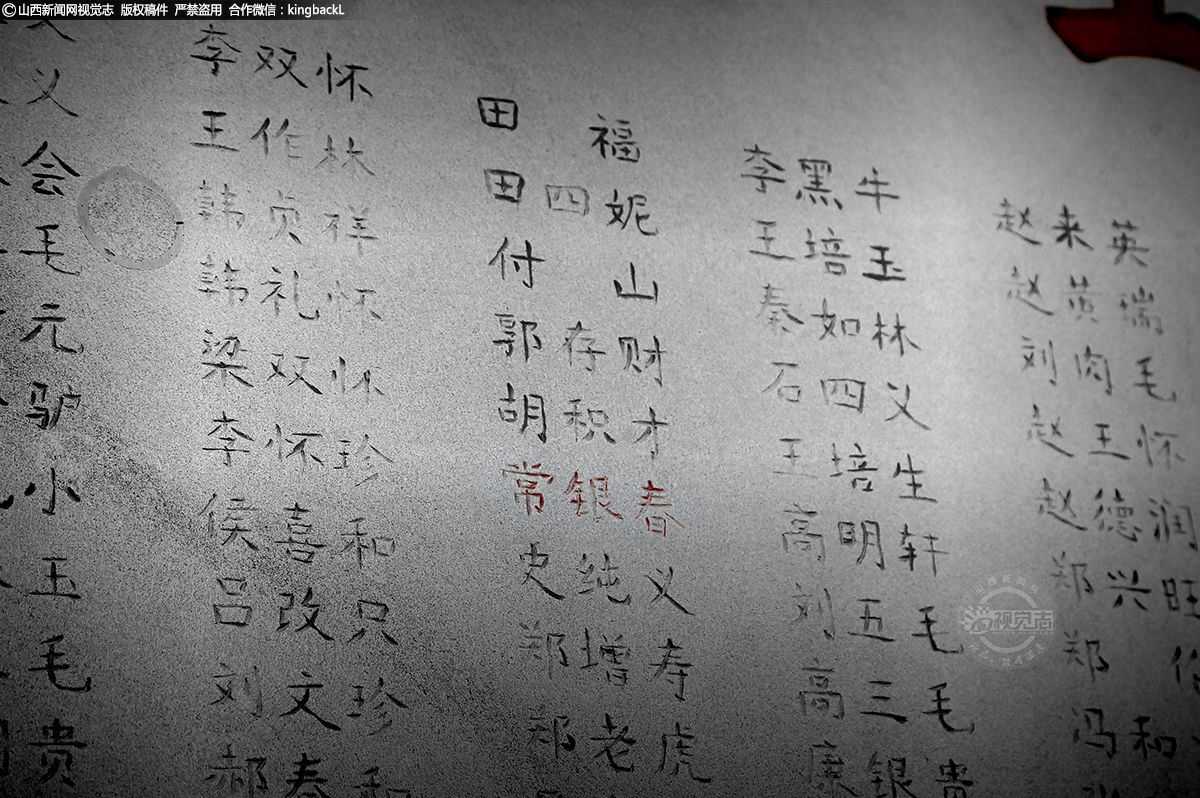 ©山西新闻网视觉志 版权稿件 严禁盗用 合作微信：kingbackL
义
会
毛
元
驴
小
玉
毛
贵
李双怀
王作林
韩贞祥
韩礼怀
梁双怀
李怀珍
侯喜和
吕改只
刘文珍
郝春和
田 福
田四妮
付 山
郭存财
胡积才
常银春
史纯义
郑增寿
郑老虎
李黑牛
王培玉
秦如林
石四义
王培生
高明轩
刘五毛
高三毛
康银贵
赵来英
赵英瑞
刘肉毛
赵王怀
赵德润
郑兴旺
郑
冯和
视觉志